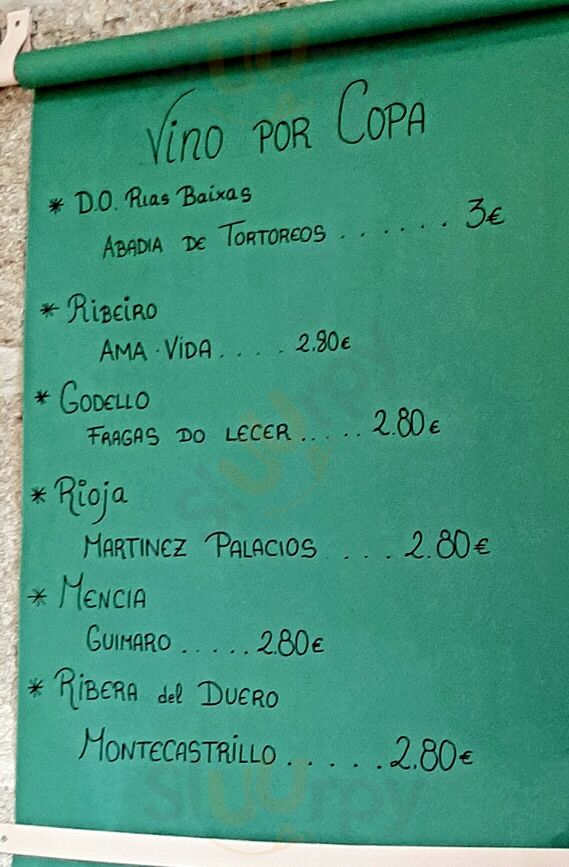 Vino por Copa
* D.O. Rias Baixas
Abadia de Tortoreos . . . . . . 3€
* Ribeiro
Ama · Vida . . . . 2.80€
* Godello
Fragas do Lecer . . . . . 2.80€
* Rioja
Martinez Palacios . . . . 2.80€
* Mencia
Guimaro . . . . . 2.80€
* Ribera del Duero
Montecastrillo . . . . . 2.80€
sluurpy
sluurpy